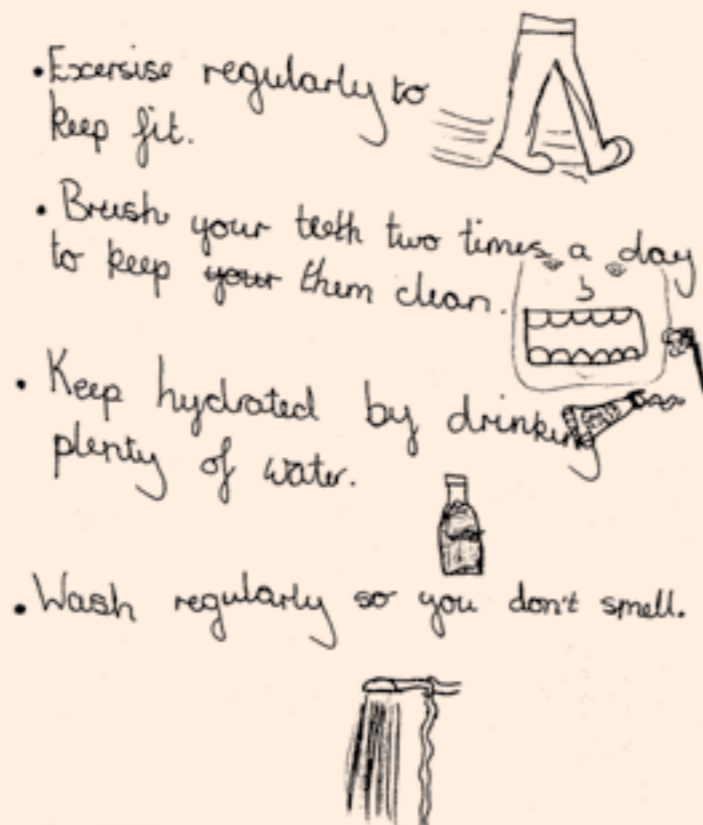 • Excersise regularly to
keep fit.
• Brush your teeth two times a day
to keep your them clean.
• Keep hydrated by drinking
plenty of water.
• Wash regularly so you don't smell.